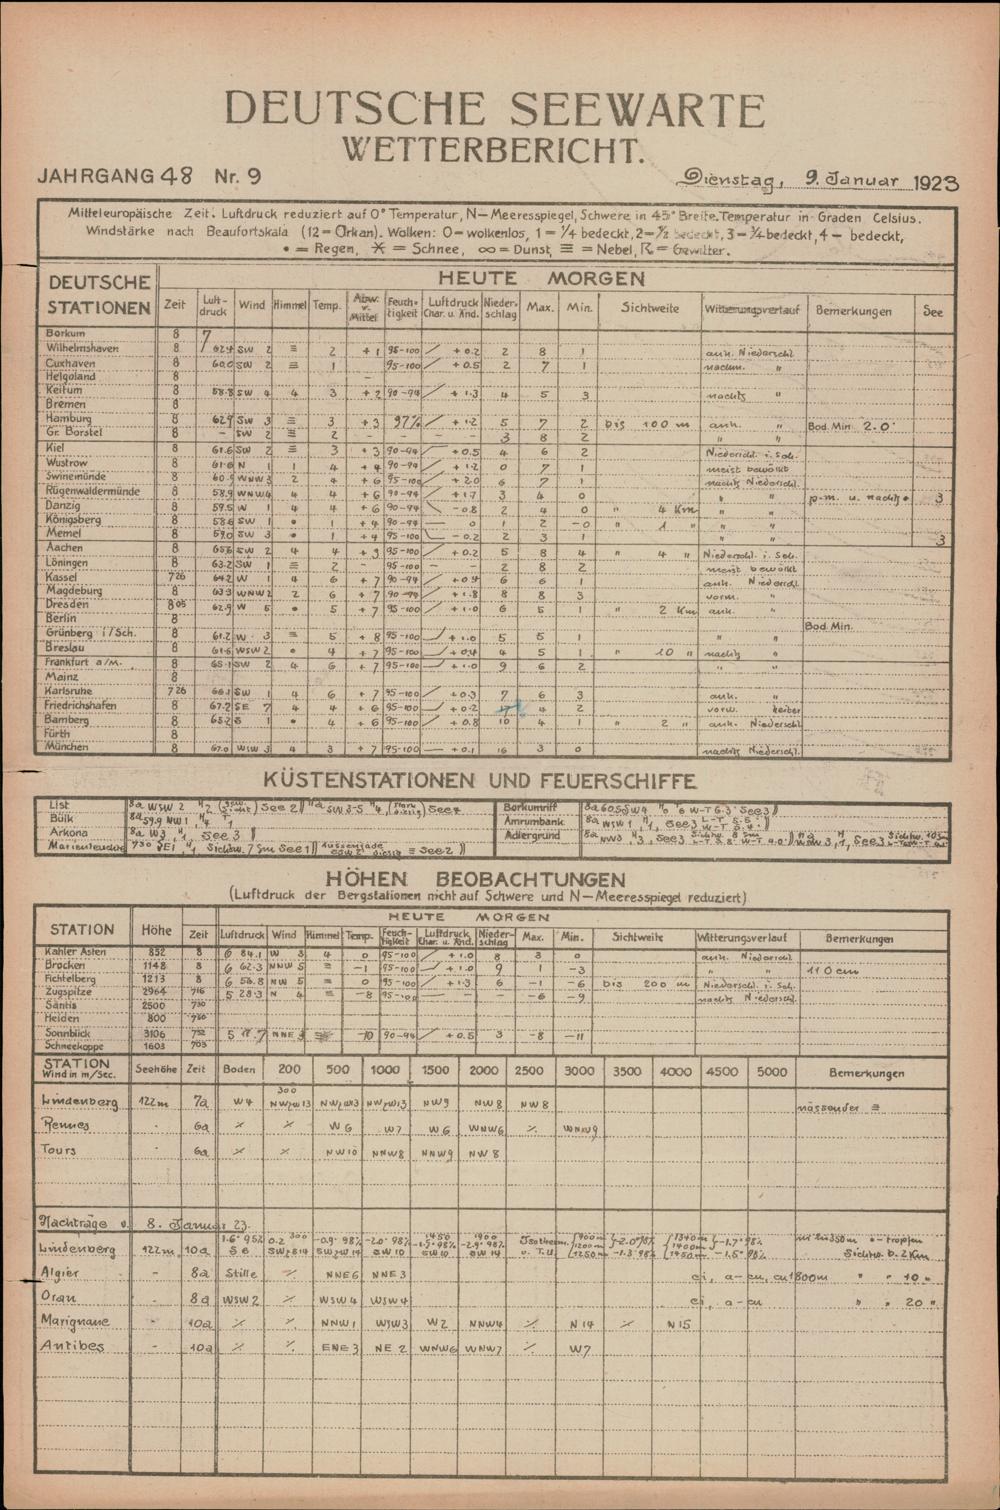 DEUTSCHE SEEWARTE
WETTERBERICHT.
JAHRGANG 48 Nr. 9 Dienstag, 9. Januar 1923
Mitteleuropäische Zeit. Luftdruck reduziert auf 0° Temperatur, N—Meeresspiegel, Schwere in 45° Breite. Temperatur in Graden Celsius.
Windstärke nach Beaufortskala (12 = Orkan). Wolken: 0 — wolkenlos, 1 = 1/4 bedeckt, 2 = 1/2 bedeckt, 3 = 3/4 bedeckt, 4 — bedeckt,
• = Regen, ✶ = Schnee, ∞ = Dunst, ≡ = Nebel, ℞ = Gewitter.
DEUTSCHE STATIONEN HEUTE MORGEN
Zeit Luft-druck Wind Himmel Temp. Abw. v. Mittel Feuch-tigkeit Luftdruck Char. u. Änd. Nieder-schlag Max. Min. Sichtweite Witterungsverlauf Bemerkungen See
Borkum 8 7
Wilhelmshaven 8 62.4 SW 2 ≡ 2 + 1 95-100 / + 0.2 2 8 1 anh. Niederschl.
Cuxhaven 8 60.0 SW 2 ≡ 1 95-100 / + 0.5 2 7 1 nachm. "
Helgoland 8
Keitum 8 58.8 SW 4 4 3 + 2 90-94 / + 1.3 4 5 3 nachts "
Bremen 8
Hamburg 8 62.9 SW 3 ≡ 3 + 3 97% / + 1.2 5 7 2 bis 100 m anh. " Bod. Min. 2.0
Gr. Borstel 8 – SW 2 ≡ 2 – – – – 3 8 2 " "
Kiel 8 61.6 SW 2 ≡ 3 + 3 90-94 / + 0.5 4 6 2 Niederschl. i. Sch.
Wustrow 8 61.6 N 1 1 4 + 4 90-94 / + 1.2 0 7 1 meist bewölkt
Swinemünde 8 60.9 WNW 3 2 4 + 6 95-100 / + 2.0 6 7 1 nachts Niederschl.
Rügenwaldermünde 8 58.9 WNW 4 4 4 + 6 90-94 / + 1.7 3 4 0 " " p-m. u. nachts • 3
Danzig 8 59.5 W 1 4 4 + 6 90-94 – 0.8 2 4 0 " 4 Km " "
Königsberg 8 58.6 SW 1 • 1 + 4 90-94 — 0 2 -0 " 1 " " "
Memel 8 57.0 SW 3 • 1 + 4 95-100 – 0.2 2 3 1 " " 3
Aachen 8 65.6 SW 2 4 4 + 3 95-100 / + 0.2 5 8 4 " 4 " Niederschl. i. Sch.
Löningen 8 63.2 SW 1 ≡ 2 – 95-100 – – 2 8 2 meist bewölkt
Kassel 7 26 64.2 W 1 4 6 + 7 90-94 / + 0.4 6 6 1 anh. Niederschl.
Magdeburg 8 63.3 WNW 2 2 6 + 7 90-94 / + 1.8 8 8 3 vorm. "
Dresden 8 05 62.9 W 5 • 5 + 7 95-100 / + 1.0 6 5 1 " 2 Km anh. "
Berlin 8 Bod. Min.
Grünberg i/Sch. 8 61.2 W 3 ≡ 5 + 8 95-100 / + 1.0 5 5 1 " "
Breslau 8 61.6 WSW 2 • 4 + 7 95-100 / + 0.4 4 5 1 " 10 " nachts "
Frankfurt a/M. 8 65.1 SW 2 4 6 + 7 95-100 / + 1.0 9 6 2 " "
Mainz 8
Karlsruhe 7 26 66.1 SW 1 4 6 + 7 95-100 / + 0.3 7 6 3 anh. "
Friedrichshafen 8 67.2 SE 7 4 4 + 6 95-100 / + 0.2 4 2 vorw. heiter
Bamberg 8 65.2 S 1 • 4 + 6 95-100 / + 0.8 10 4 1 " 2 " anh. Niederschl.
Fürth 8
München 8 67.0 WSW 3 4 3 + 7 95-100 — + 0.1 16 3 0 nachts Niederschl.
KÜSTENSTATIONEN UND FEUERSCHIFFE
List 8a WSW 2
Bülk 8a 59.9 NW 1
Arkona 8a W3, See 3
Marienleuchte 7 30 SE 1, Sichtw. 7 Sm See 1
Borkumriff
Amrumbank 8a WSW 1
Adlergrund 8a
HÖHEN BEOBACHTUNGEN
(Luftdruck der Bergstationen nicht auf Schwere und N—Meeresspiegel reduziert)
STATION Höhe HEUTE MORGEN
Zeit Luftdruck Wind Himmel Temp. Feuch-tigkeit Luftdruck Char. u. Änd. Nieder-schlag Max. Min. Sichtweite Witterungsverlauf Bemerkungen
Kahler Asten 852 8 6 84.1 W 3 4 0 95-100 / + 1.0 8 3 0 anh. Niederschl.
Brocken 1148 8 6 62.3 NNW 5 ≡ -1 95-100 / + 1.0 9 1 -3 " " 110 cm
Fichtelberg 1213 8 6 56.8 NW 5 ≡ 0 95-100 / + 1.3 6 -1 -6 bis 200 m Niederschl. i. Sch.
Zugspitze 2964 7 16 5 28.3 N 4 ≡ -8 95-100 — – – -6 -9 nachts Niederschl.
Säntis 2500 7 30
Heiden 800 7 30
Sonnblick 3106 7 52 5 17.7 NNE 3 ≡ -10 90-94 / + 0.5 3 -8 -11
Schneekoppe 1603 7 03
STATION Wind in m/Sec. Seehöhe Zeit Boden 200 500 1000 1500 2000 2500 3000 3500 4000 4500 5000 Bemerkungen
300
Lindenberg 122m 7a W4 NWzW13 NWzW13 NWzW13 NW9 NW8 NW8 nässender ≡
Rennes - 6a ⁒ ⁒ W6 W7 W6 WNW6 ⁒ WNW9
Tours - 6a ⁒ ⁒ NW10 NNW8 NNW9 NW8
Nachträge v. 8. Januar 23.
Lindenberg 122m 10a 1.6° 95% S6 0.2 300 SWzS14 -0.9° 98% SWzW14 -2.0° 98% SW10 1450 SW10 1900 -2.9° 98% SW14 Isotherm. u. T.U.
Sichtw. b. 2 Km
Algier - 8a Stille ⁒ NNE6 NNE3 ci, a-cu, cu 1800m " " 10 "
Oran - 8a WSW2 ⁒ WSW4 WSW4 ci, a-cu " " 20 "
Marignane - 10a ⁒ ⁒ NNW1 WSW3 W2 NNW4 ⁒ N14 ⁒ N15
Antibes - 10a ⁒ ⁒ ENE3 NE2 WNW6 WNW7 ⁒ W7